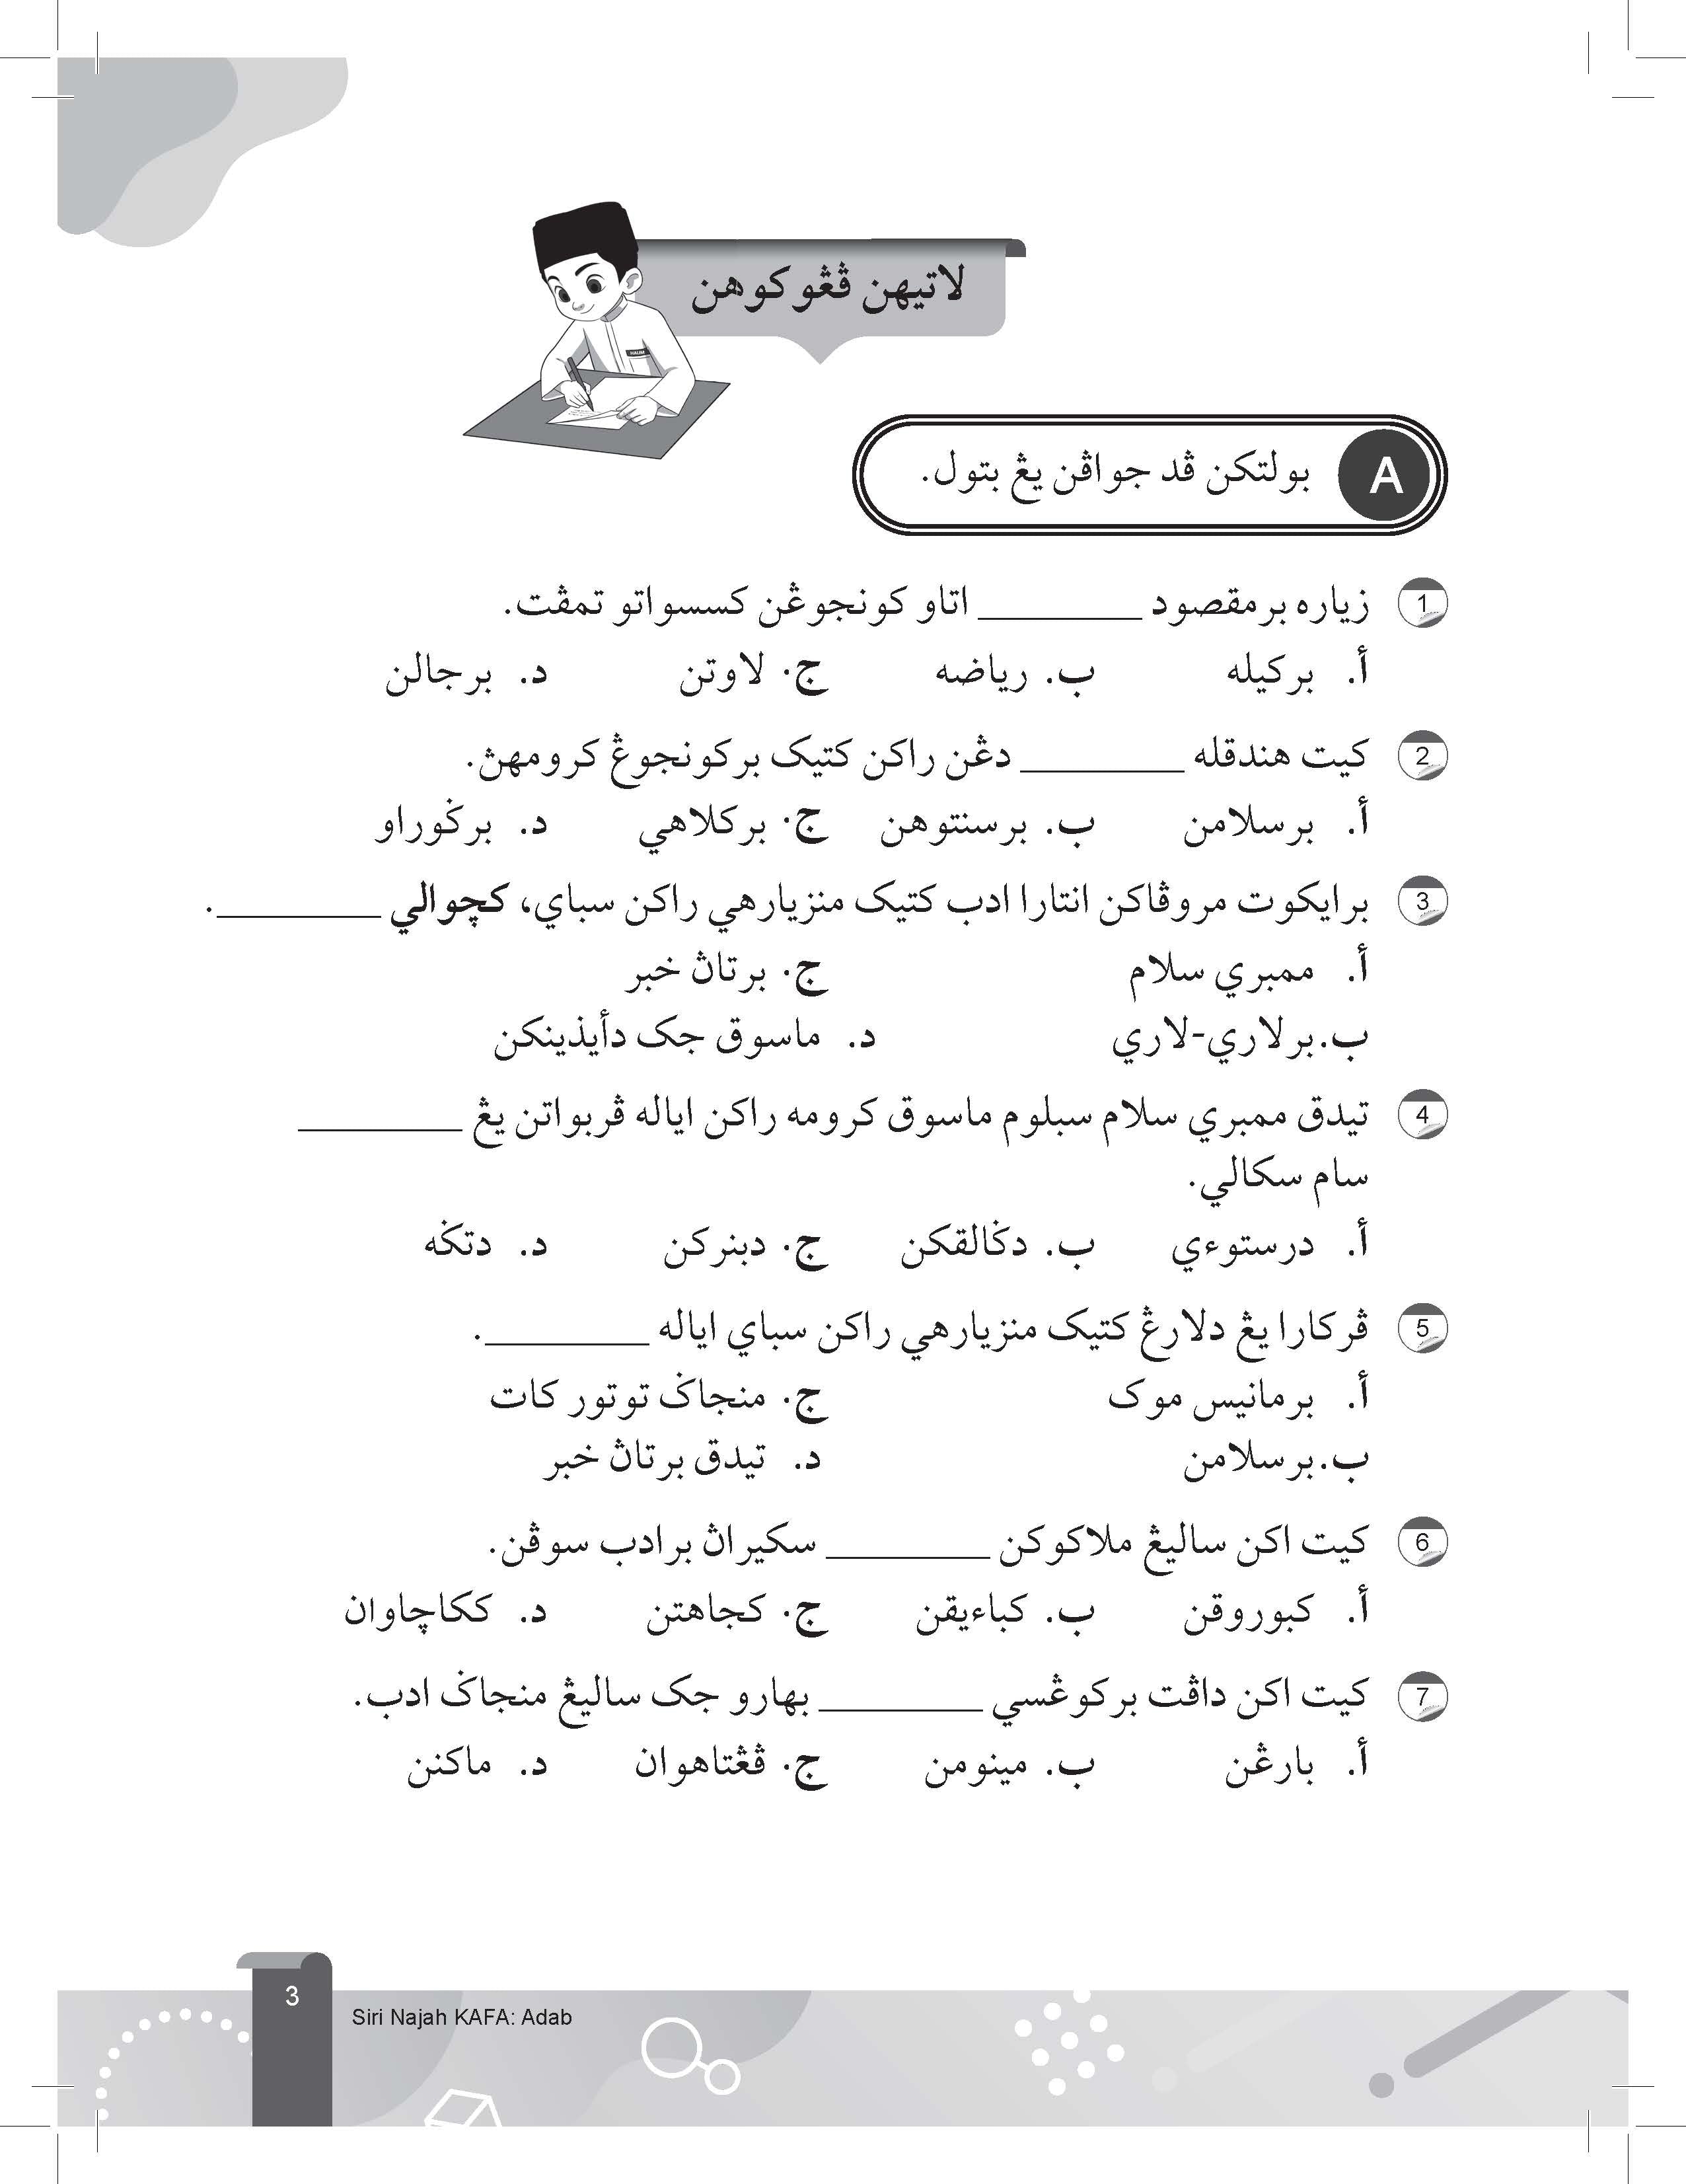 لاتيهن ڤڠوكوهن
A بولتکن ڤد جواڤن يڠ بتول.
1 زياره برمقصود __________ اتاو کونجوڠن کسسواتو تمڤت.
أ. برکيله ب. رياضه ج. لاوتن د. برجالن
2 کيت هندقله __________ دڠن راکن کتيک برکونجوڠ کرومهڽ.
أ. برسلامن ب. برسنتوهن ج. برکلاهي د. برݢوراو
3 برايکوت مروڤاکن انتارا ادب کتيک منزيارهي راکن سباي، کچوالي __________.
أ. ممبري سلام ج. برتاڽ خبر
ب. برلاري-لاري د. ماسوق جک دأيذينکن
4 تيدق ممبري سلام سبلوم ماسوق کرومه راکن اياله ڤربواتن يڠ __________
سام سکالي.
أ. درستوءي ب. دݢالقکن ج. دبنرکن د. دتݢه
5 ڤرکارا يڠ دلارڠ کتيک منزيارهي راکن سباي اياله __________.
أ. برمانيس موک ج. منجاݢ توتور کات
ب. برسلامن د. تيدق برتاڽ خبر
6 کيت اکن ساليڠ ملاکوکن __________ سکيراڽ برادب سوڤن.
أ. کبوروقن ب. کباءيقن ج. کجاهتن د. ککاچاوان
7 کيت اکن داڤت برکوڠسي __________ بهارو جک ساليڠ منجاݢ ادب.
أ. بارڠن ب. مينومن ج. ڤڠتاهوان د. ماکنن
3
Siri Najah KAFA: Adab